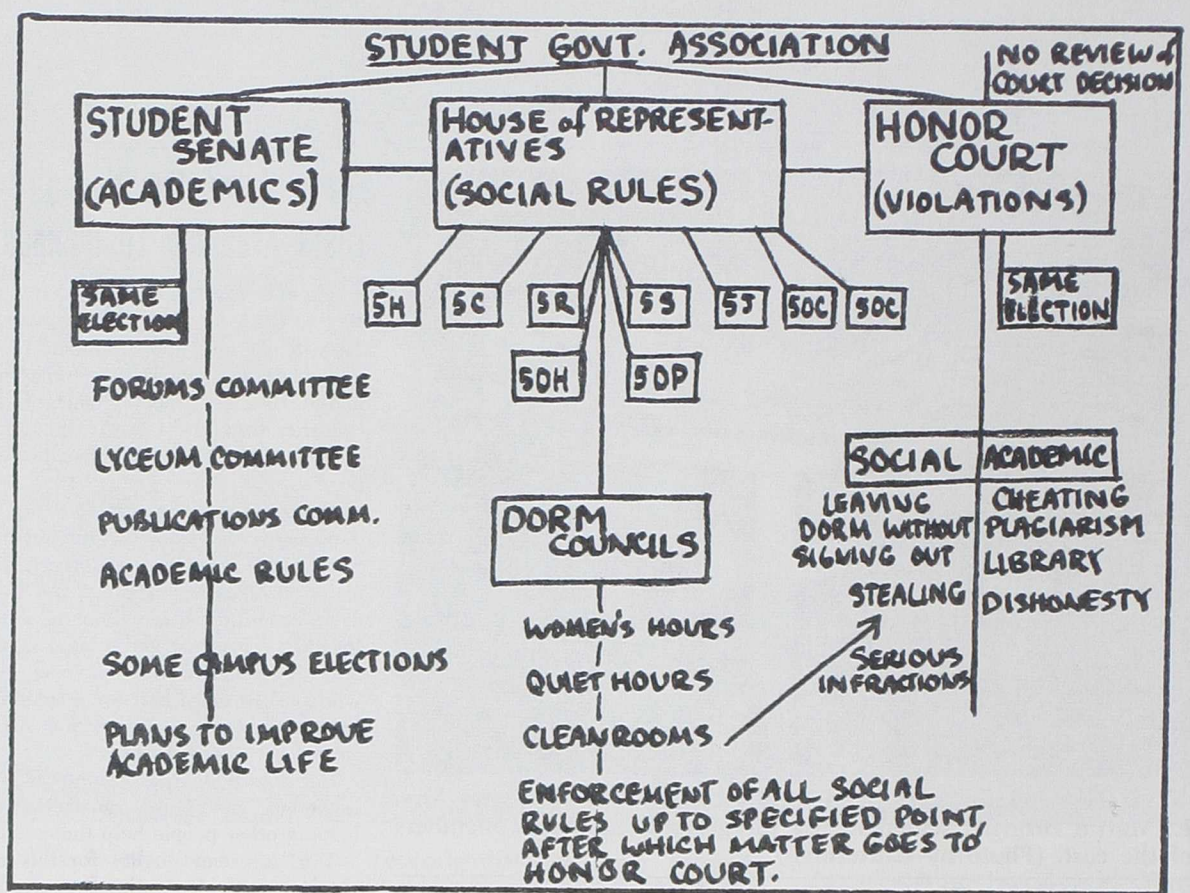 STUDENT GOVT. ASSOCIATION
NO REVIEW of
COURT DECISION
STUDENT
SENATE
(ACADEMICS)
HOUSE of REPRESENT-
ATIVES
(SOCIAL RULES)
HONOR
COURT
(VIOLATIONS)
SAME
ELECTION
5H
5C
5R
5S
5J
SOC
SOC
SAME
ELECTION
5DH
5DP
FORUMS COMMITTEE
LYCEUM COMMITTEE
PUBLICATIONS COMM.
ACADEMIC RULES
SOME CAMPUS ELECTIONS
PLANS TO IMPROVE
ACADEMIC LIFE
DORM
COUNCILS
WOMEN'S HOURS
QUIET HOURS
CLEAN ROOMS
ENFORCEMENT OF ALL SOCIAL
RULES UP TO SPECIFIED POINT,
AFTER WHICH MATTER GOES TO
HONOR COURT.
SOCIAL
LEAVING
DORM WITHOUT
SIGNING OUT
STEALING
SERIOUS
INFRACTIONS
ACADEMIC
CHEATING
PLAGIARISM
LIBRARY
DISHONESTY